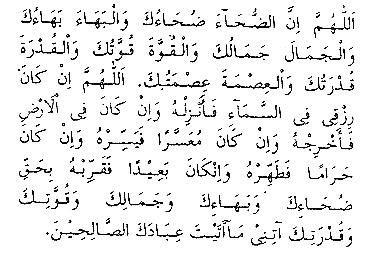 اَللّٰهُمَّ اِنَّ الضُّحَآءَ ضُحَاءُكَ وَالْبَهَاءَ بَهَاءُكَ
وَالْجَمَالَ جَمَالُكَ وَالْقُوَّةَ قُوَّتُكَ وَالْقُدْرَةَ
قُدْرَتُكَ وَالْعِصْمَةَ عِصْمَتُكَ. اَللّٰهُمَّ اِنْ كَانَ
رِزْقِى فِى السَّمَآءِ فَأَنْزِلْهُ وَاِنْ كَانَ فِى اْلاَرْضِ
فَأَخْرِجْهُ وَاِنْ كَانَ مُعَسَّرًا فَيَسِّرْهُ وَاِنْ كَانَ
حَرَامًا فَطَهِّرْهُ وَاِنْكَانَ بَعِيْدًا فَقَرِّبْهُ بِحَقِّ
ضُحَاءِكَ وَبَهَاءِكَ وَجَمَالِكَ وَقُوَّتِكَ
وَقُدْرَتِكَ آتِنِىْ مَاأَتَيْتَ عِبَادَكَ الصَّالِحِيْنَ.